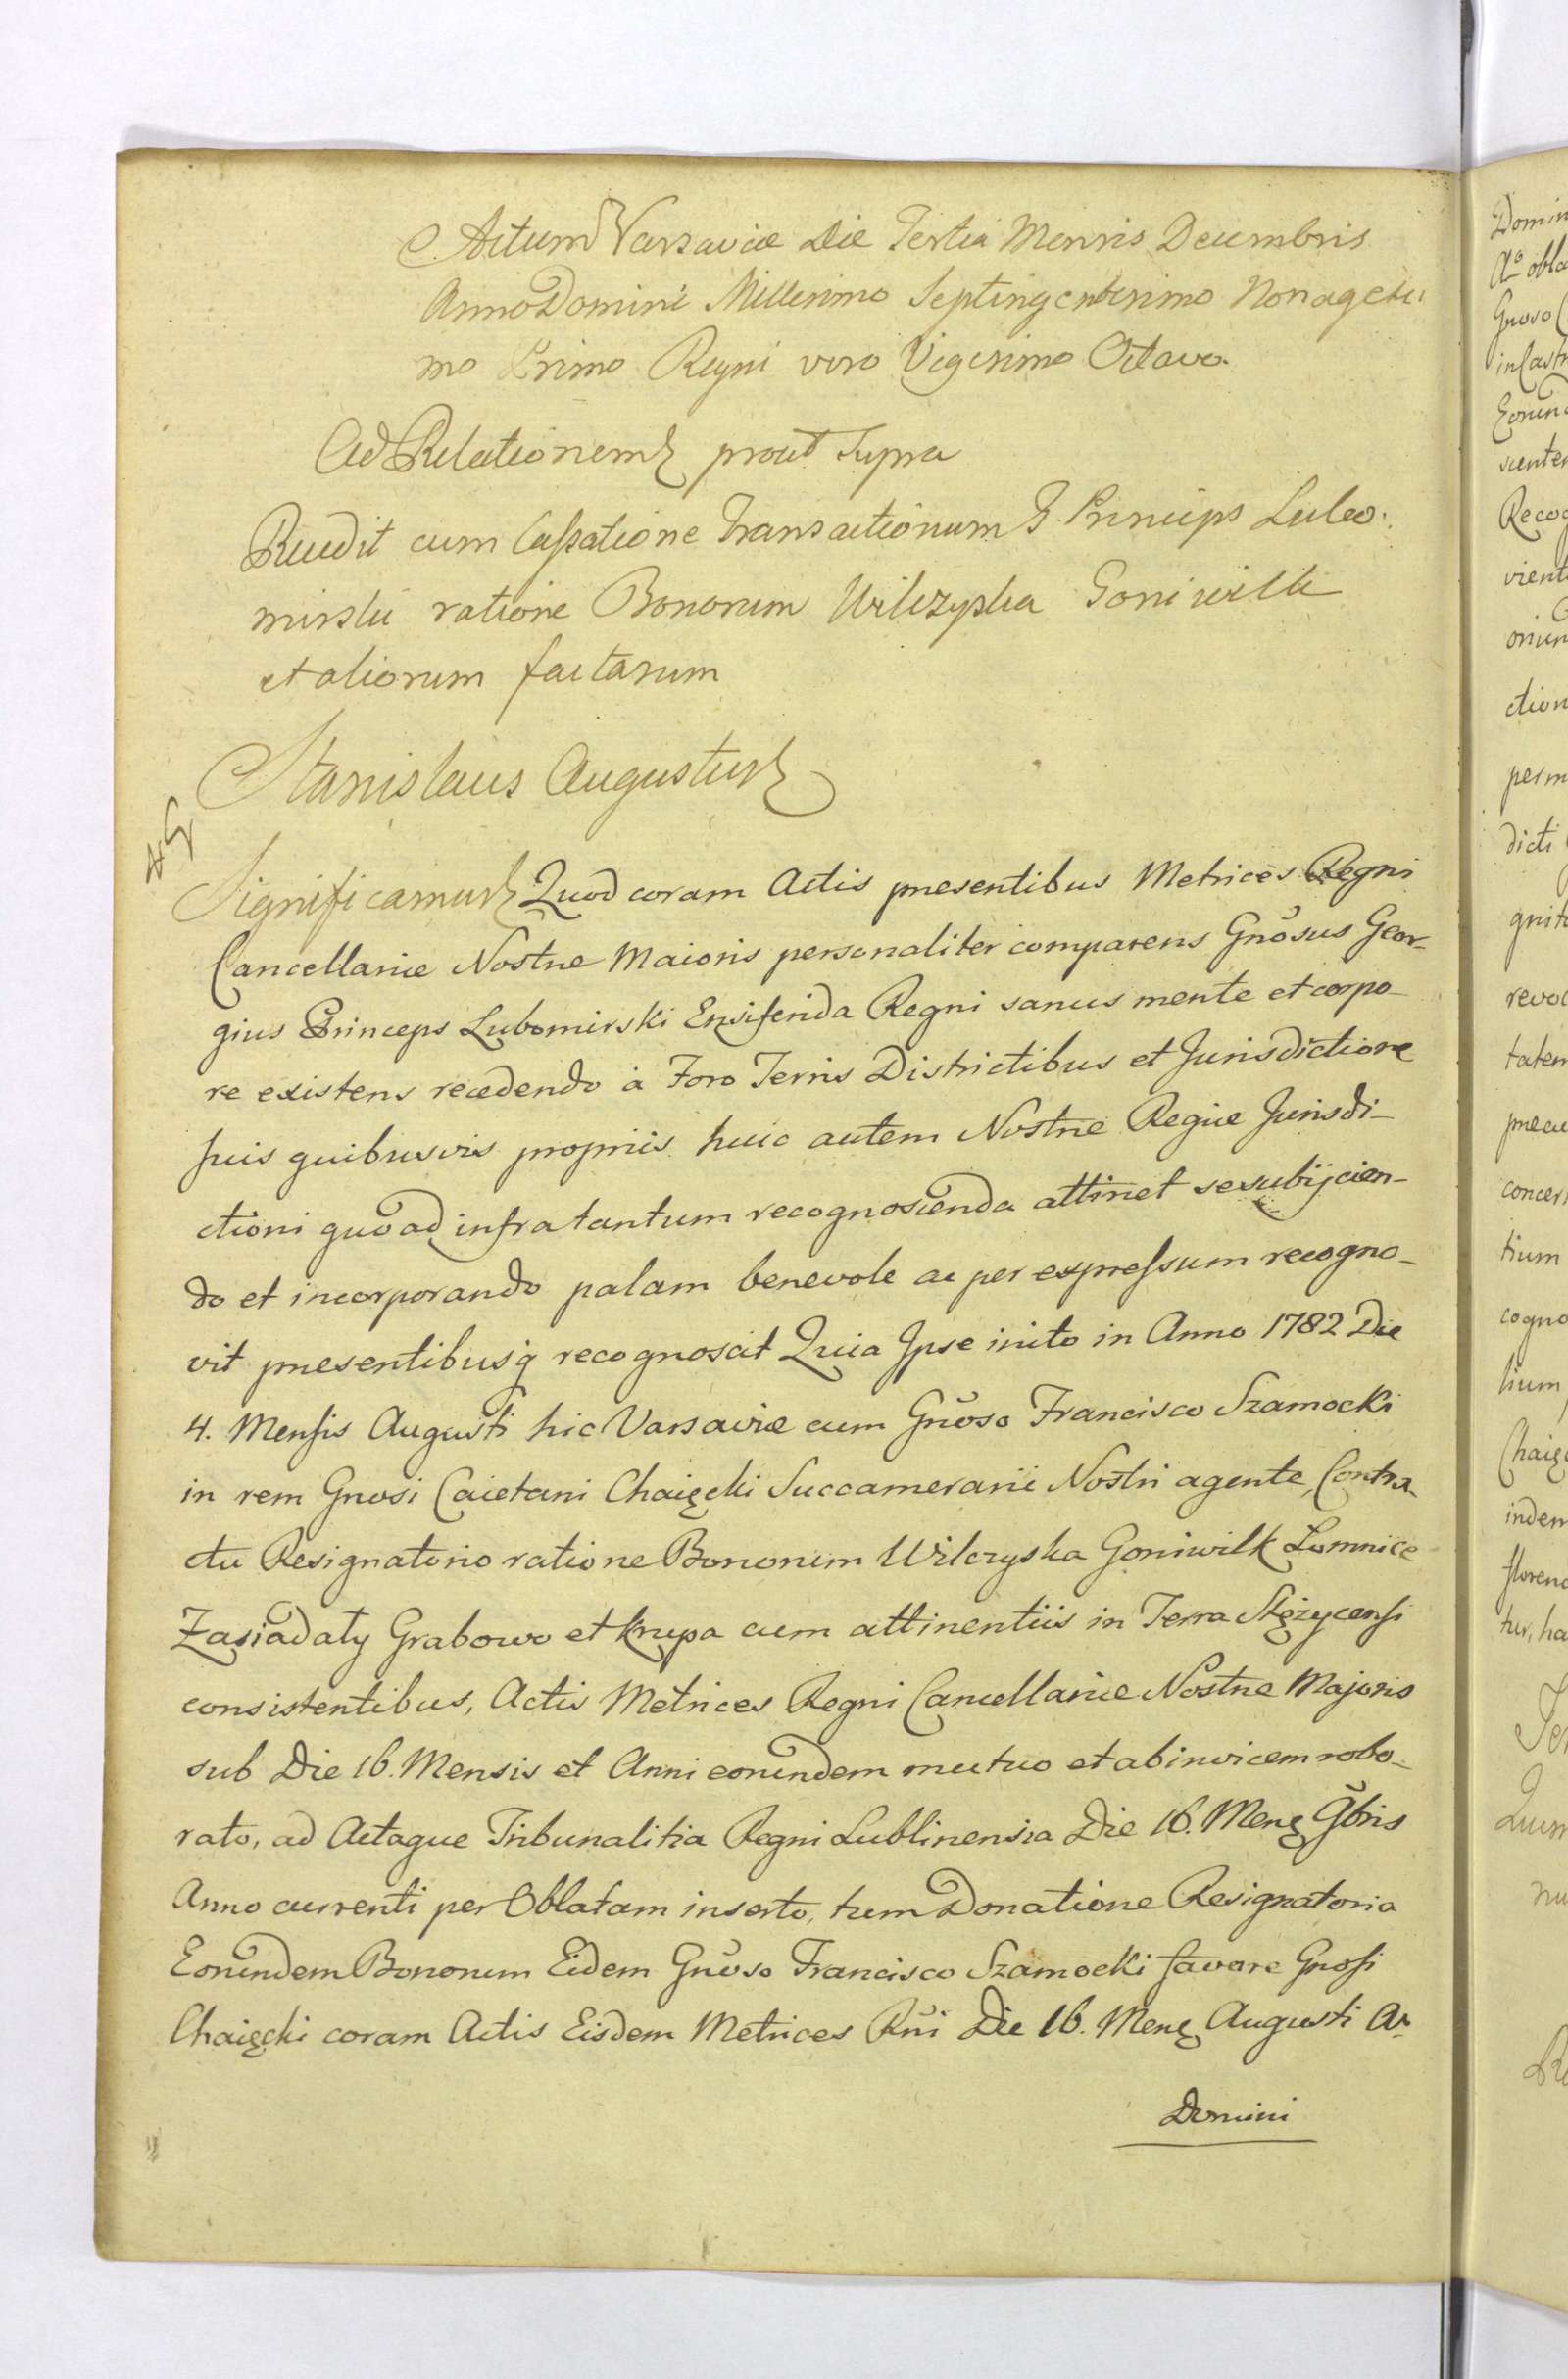 Actum Varsaviæ Die Tertia Mensis Decembris
Anno Domini Millesimo Septingentesimo Nonagesi
mo Primo Regni vero Vigesimo Octavo.
Ad Relationem prout Supra
Recedit cum Cassatione Transactionum G. Princeps Lubo:
mirski ratione Bonorum Wilczyska Goniwilk
et aliorum factarum
Stanislaus Augustus
Significamus Quod coram Actis præsentibus Metrices Regni
Cancellariæ Nostræ Maioris personaliter comparens Gnõsus Geor-
gius Princeps Lubomirski Ensiferida Regni sanus mente et corpo-
re existens recedendo à Foro Terris Districtibus et Jurisdictione
suis quibusvis propriis huic autem Nostræ Regiæ Jurisdi-
ctioni quo ad infra tantum recognoscenda attinet se subijcien-
do et incorporando palam benevole ac per expressum recogno-
vit præsentibusq recognoscit Quia Ipse inito in Anno 1782 Die
4. Mensis Augusti hic Varsaviæ cum Gnõso Francisco Szamocki
in rem Gnosi Caietani Chaięcki Succamerarii Nostri agente, Contra-
ctu Resignatorio ratione Bonorum Wilczyska Goniwilk Lomnice
Zasiadały Grabowo et Krupa cum attinentiis in Terra Stężycensi
consistentibus, Actis Metrices Regni Cancellariæ Nostræ Majoris
sub Die 16. Mensis et Anni eorundem mutuo et ab invicem robo-
rato, ad Actaque Tribunalitia Regni Lublinensia Die 16. Mens Gbris
Anno currenti per Oblatam inserto, tum Donatione Resignatoria
Eorundem Bonorum Eidem Gnõso Francisco Szamocki favore Gnosi
Chaięcki coram Actis Eisdem Metrices Rñi Die 16. Mens Augusti Aº
Domini